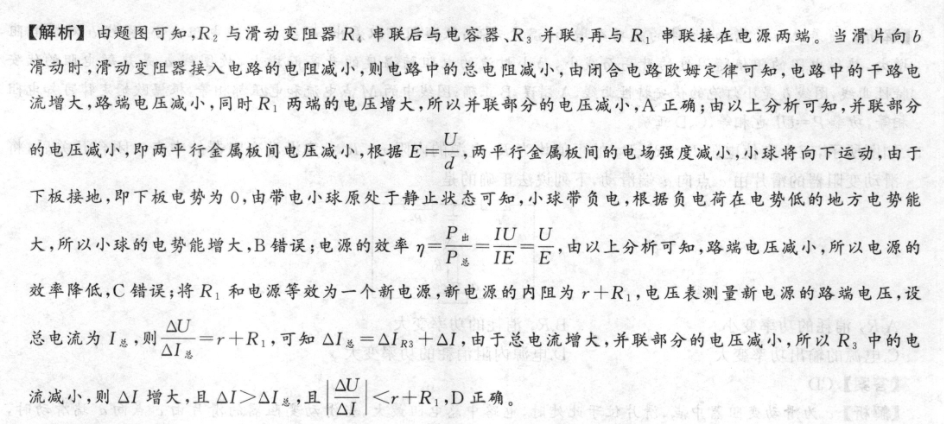 【解析】由题图可知,R₂ 与滑动变阻器R₄ 串联后与电容器、R₃ 并联,再与 R₁ 串联接在电源两端。当滑片向 b
滑动时,滑动变阻器接入电路的电阻减小,则电路中的总电阻减小,由闭合电路欧姆定律可知,电路中的干路电
流增大,路端电压减小,同时R₁ 两端的电压增大,所以并联部分的电压减小,A 正确;由以上分析可知,并联部分
的电压减小,即两平行金属板间电压减小,根据 E=U/d,两平行金属板间的电场强度减小,小球将向下运动,由于
下板接地,即下板电势为 0,由带电小球原处于静止状态可知,小球带负电,根据负电荷在电势低的地方电势能
大,所以小球的电势能增大,B 错误;电源的效率 η=P出/P总=IU/IE=U/E,由以上分析可知,路端电压减小,所以电源的
效率降低,C 错误;将 R₁ 和电源等效为一个新电源,新电源的内阻为 r+R₁,电压表测量新电源的路端电压,设
总电流为 I总,则 ΔU/ΔI总=r+R₁,可知 ΔI总=ΔI_R3+ΔI,由于总电流增大,并联部分的电压减小,所以 R₃ 中的电
流减小,则 ΔI 增大,且 ΔI>ΔI总,且|ΔU/ΔI|<r+R₁,D 正确。